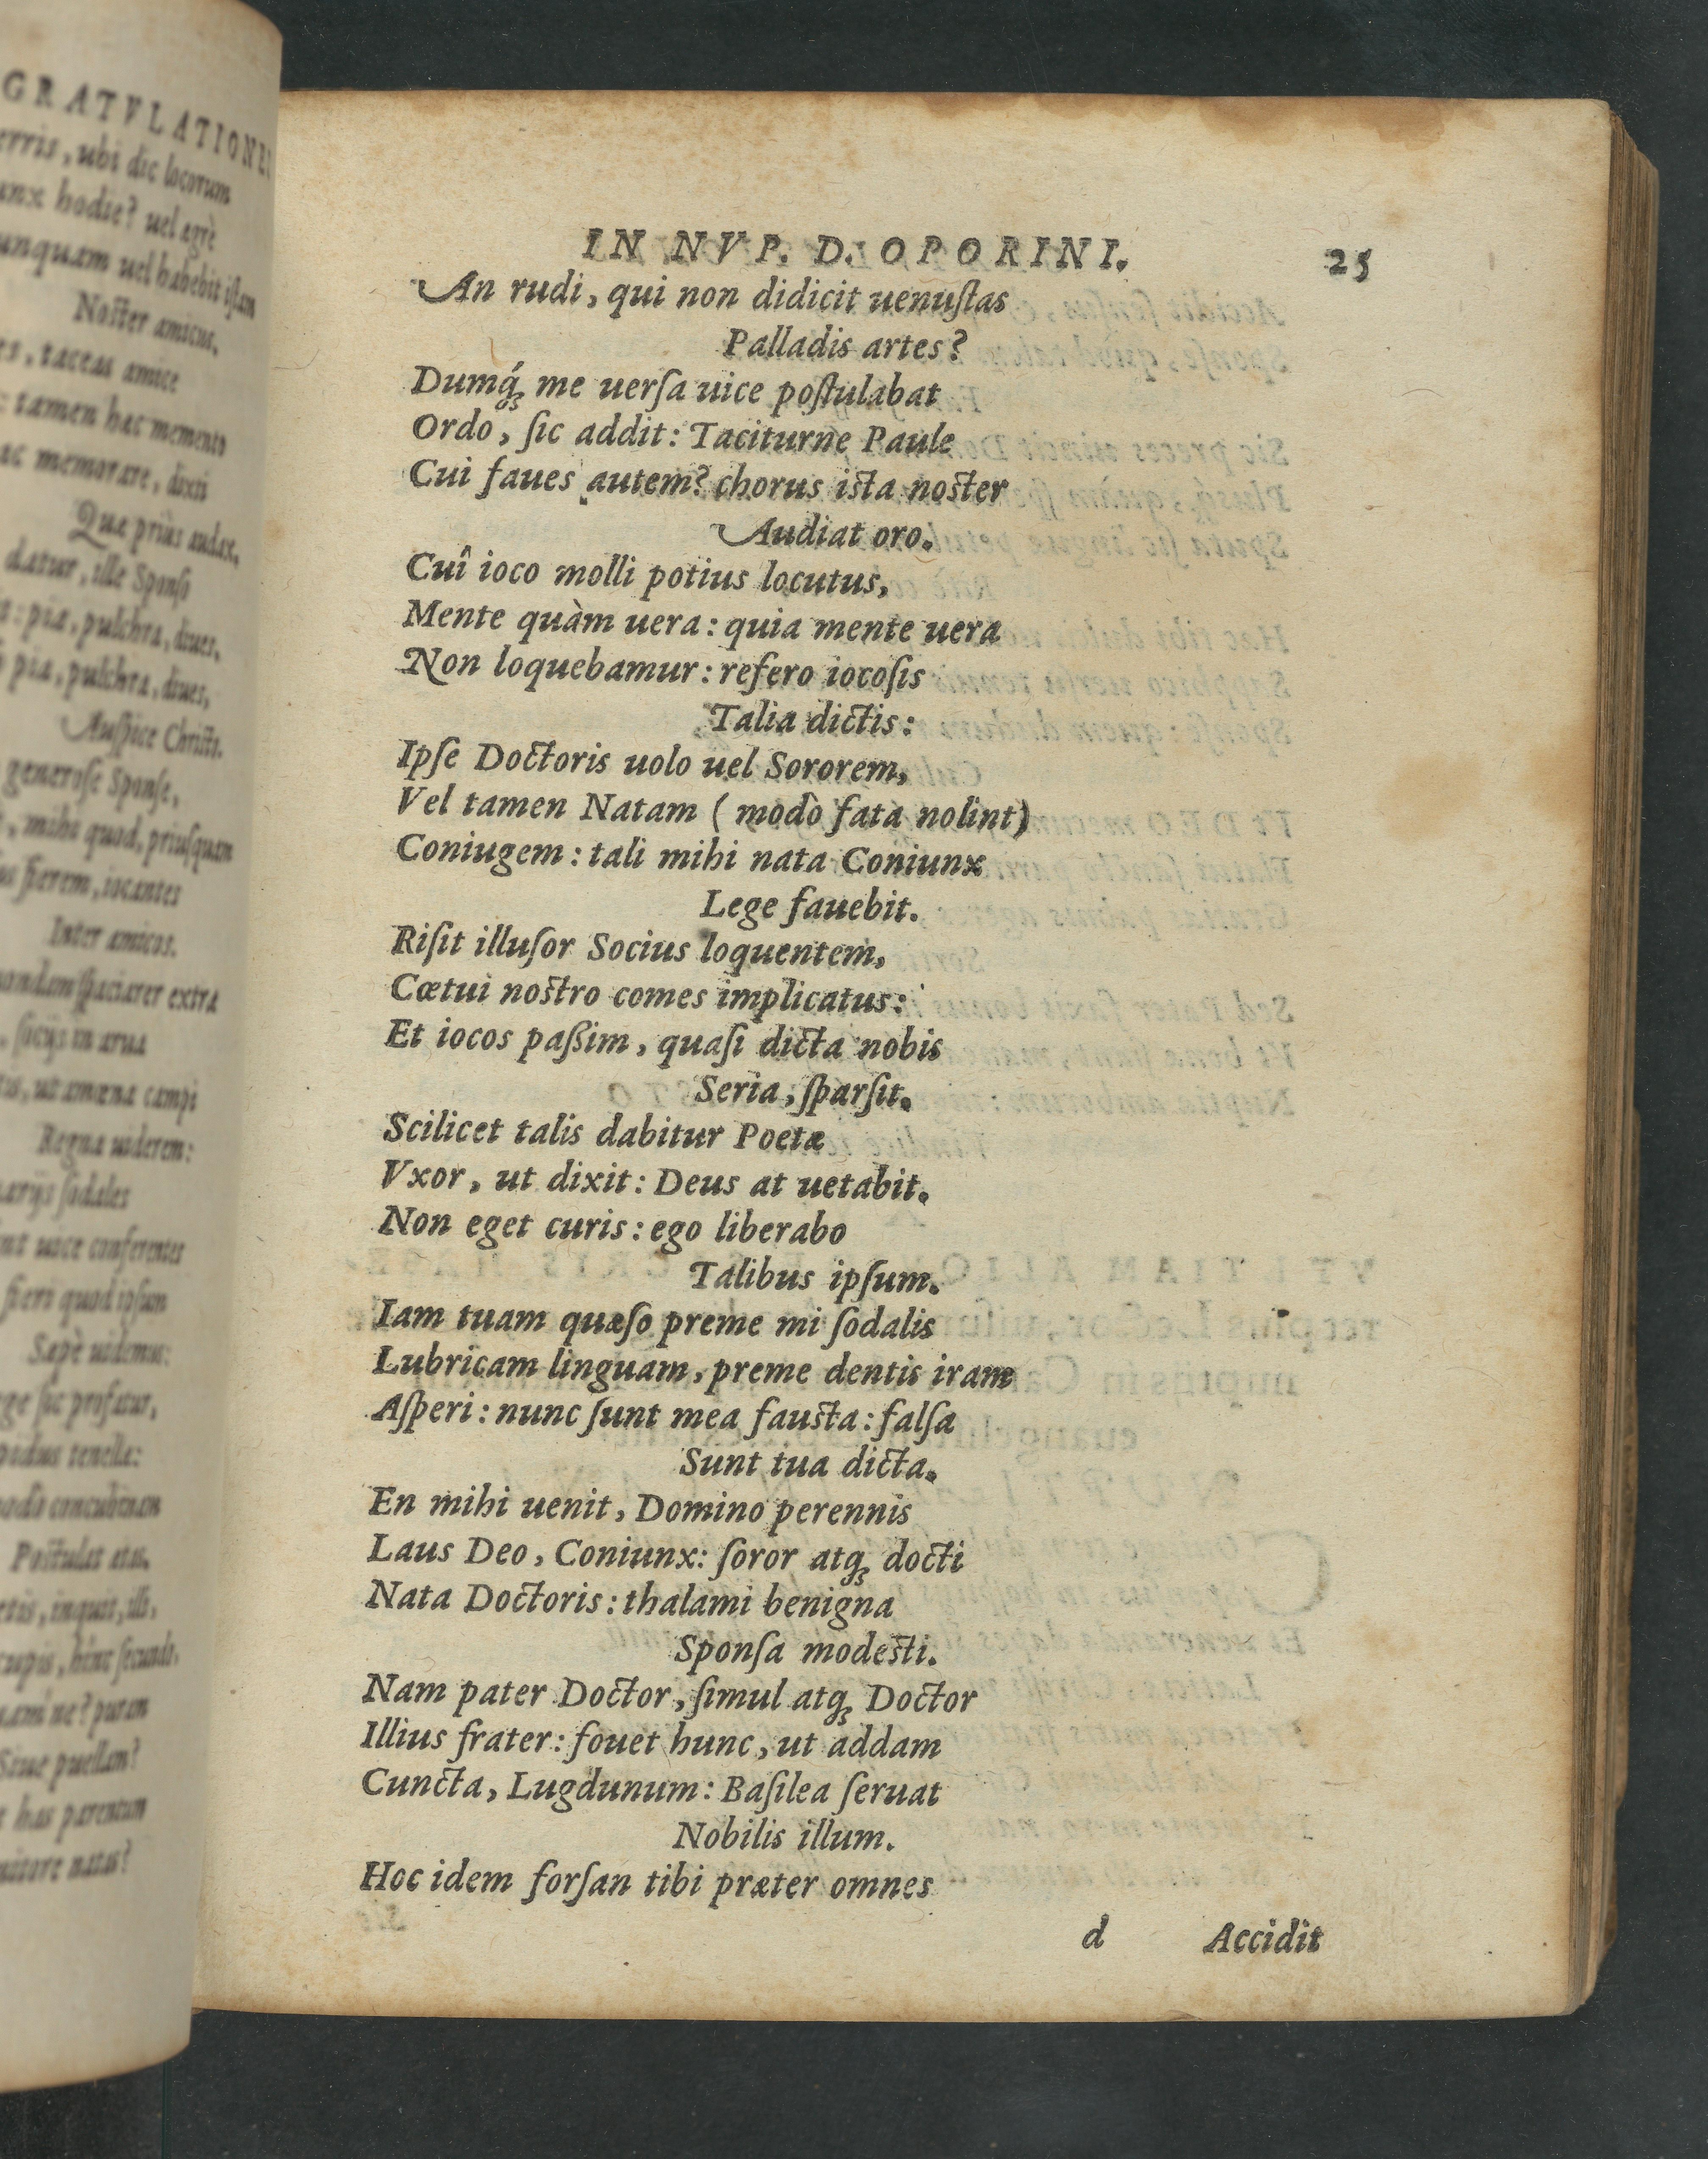 GRATVLATIONES
erris, ubi dic locorum
unx hodie? uel ægrè
unquam uel habebit istam
Noster amicus.
es, taceas amice
tamen hæc memento
ac memorare, dixit
Quæ priùs audax.
datur, ille Sponso
pia, pulchra, diues.
pia, pulchra, diues,
Auspice Christo.
generose Sponse,
mihi quod, priusquam
sperem, iocantes
Inter amicos.
spaciarer extra
socijs in arua
ut amœna campi
Regna uiderem:
sodales
uoce conferentes
fieri quod ipsum
Sæpè uidemus:
ge sic profatur,
tenella:
concubinam
Postulat ætas.
inquit, illi,
cupis, hinc secundo,
ne? puram
Siue puellam?
has parentum
IN NVP. D. OPORINI. 25
An rudi, qui non didicit uenustas
Palladis artes?
Dumq́ꝫ me uersa uice postulabat
Ordo, sic addit: Taciturne Paule
Cui faues autem? chorus ista noster
Audiat oro.
Cuî ioco molli potius locutus,
Mente quàm uera: quia mente uera
Non loquebamur: refero iocosis
Talia dictis:
Ipse Doctoris uolo uel Sororem,
Vel tamen Natam ( modò fata nolint)
Coniugem: tali mihi nata Coniunx
Lege fauebit.
Risit illusor Socius loquentem,
Cœtui nostro comes implicatus:
Et iocos paßim, quasi dicta nobis
Seria, sparsit.
Scilicet talis dabitur Poetæ
Vxor, ut dixit: Deus at uetabit.
Non eget curis: ego liberabo
Talibus ipsum.
Iam tuam quæso preme mi sodalis
Lubricam linguam, preme dentis iram
Asperi: nunc sunt mea fausta: falsa
Sunt tua dicta.
En mihi uenit, Domino perennis
Laus Deo, Coniunx: soror atqꝫ docti
Nata Doctoris: thalami benigna
Sponsa modesti.
Nam pater Doctor, simul atqꝫ Doctor
Illius frater: fouet hunc, ut addam
Cuncta, Lugdunum: Basilea seruat
Nobilis illum.
Hoc idem forsan tibi præter omnes
d Accidit